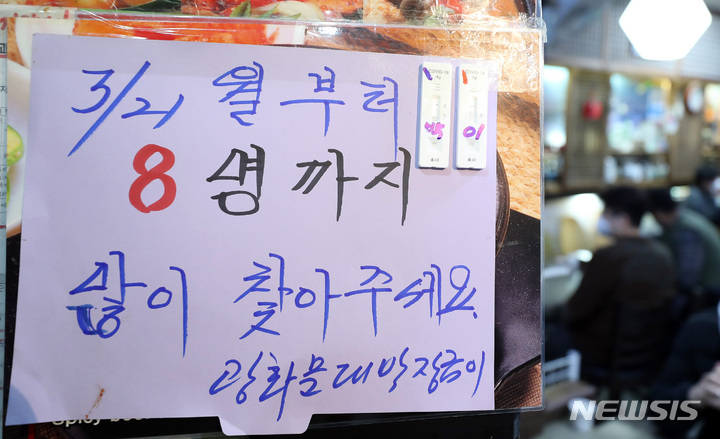 3/21 월부터
8 명까지
많이 찾아주세요.
광화문대박장금이
박 이
Spicy bee
NEWSIS